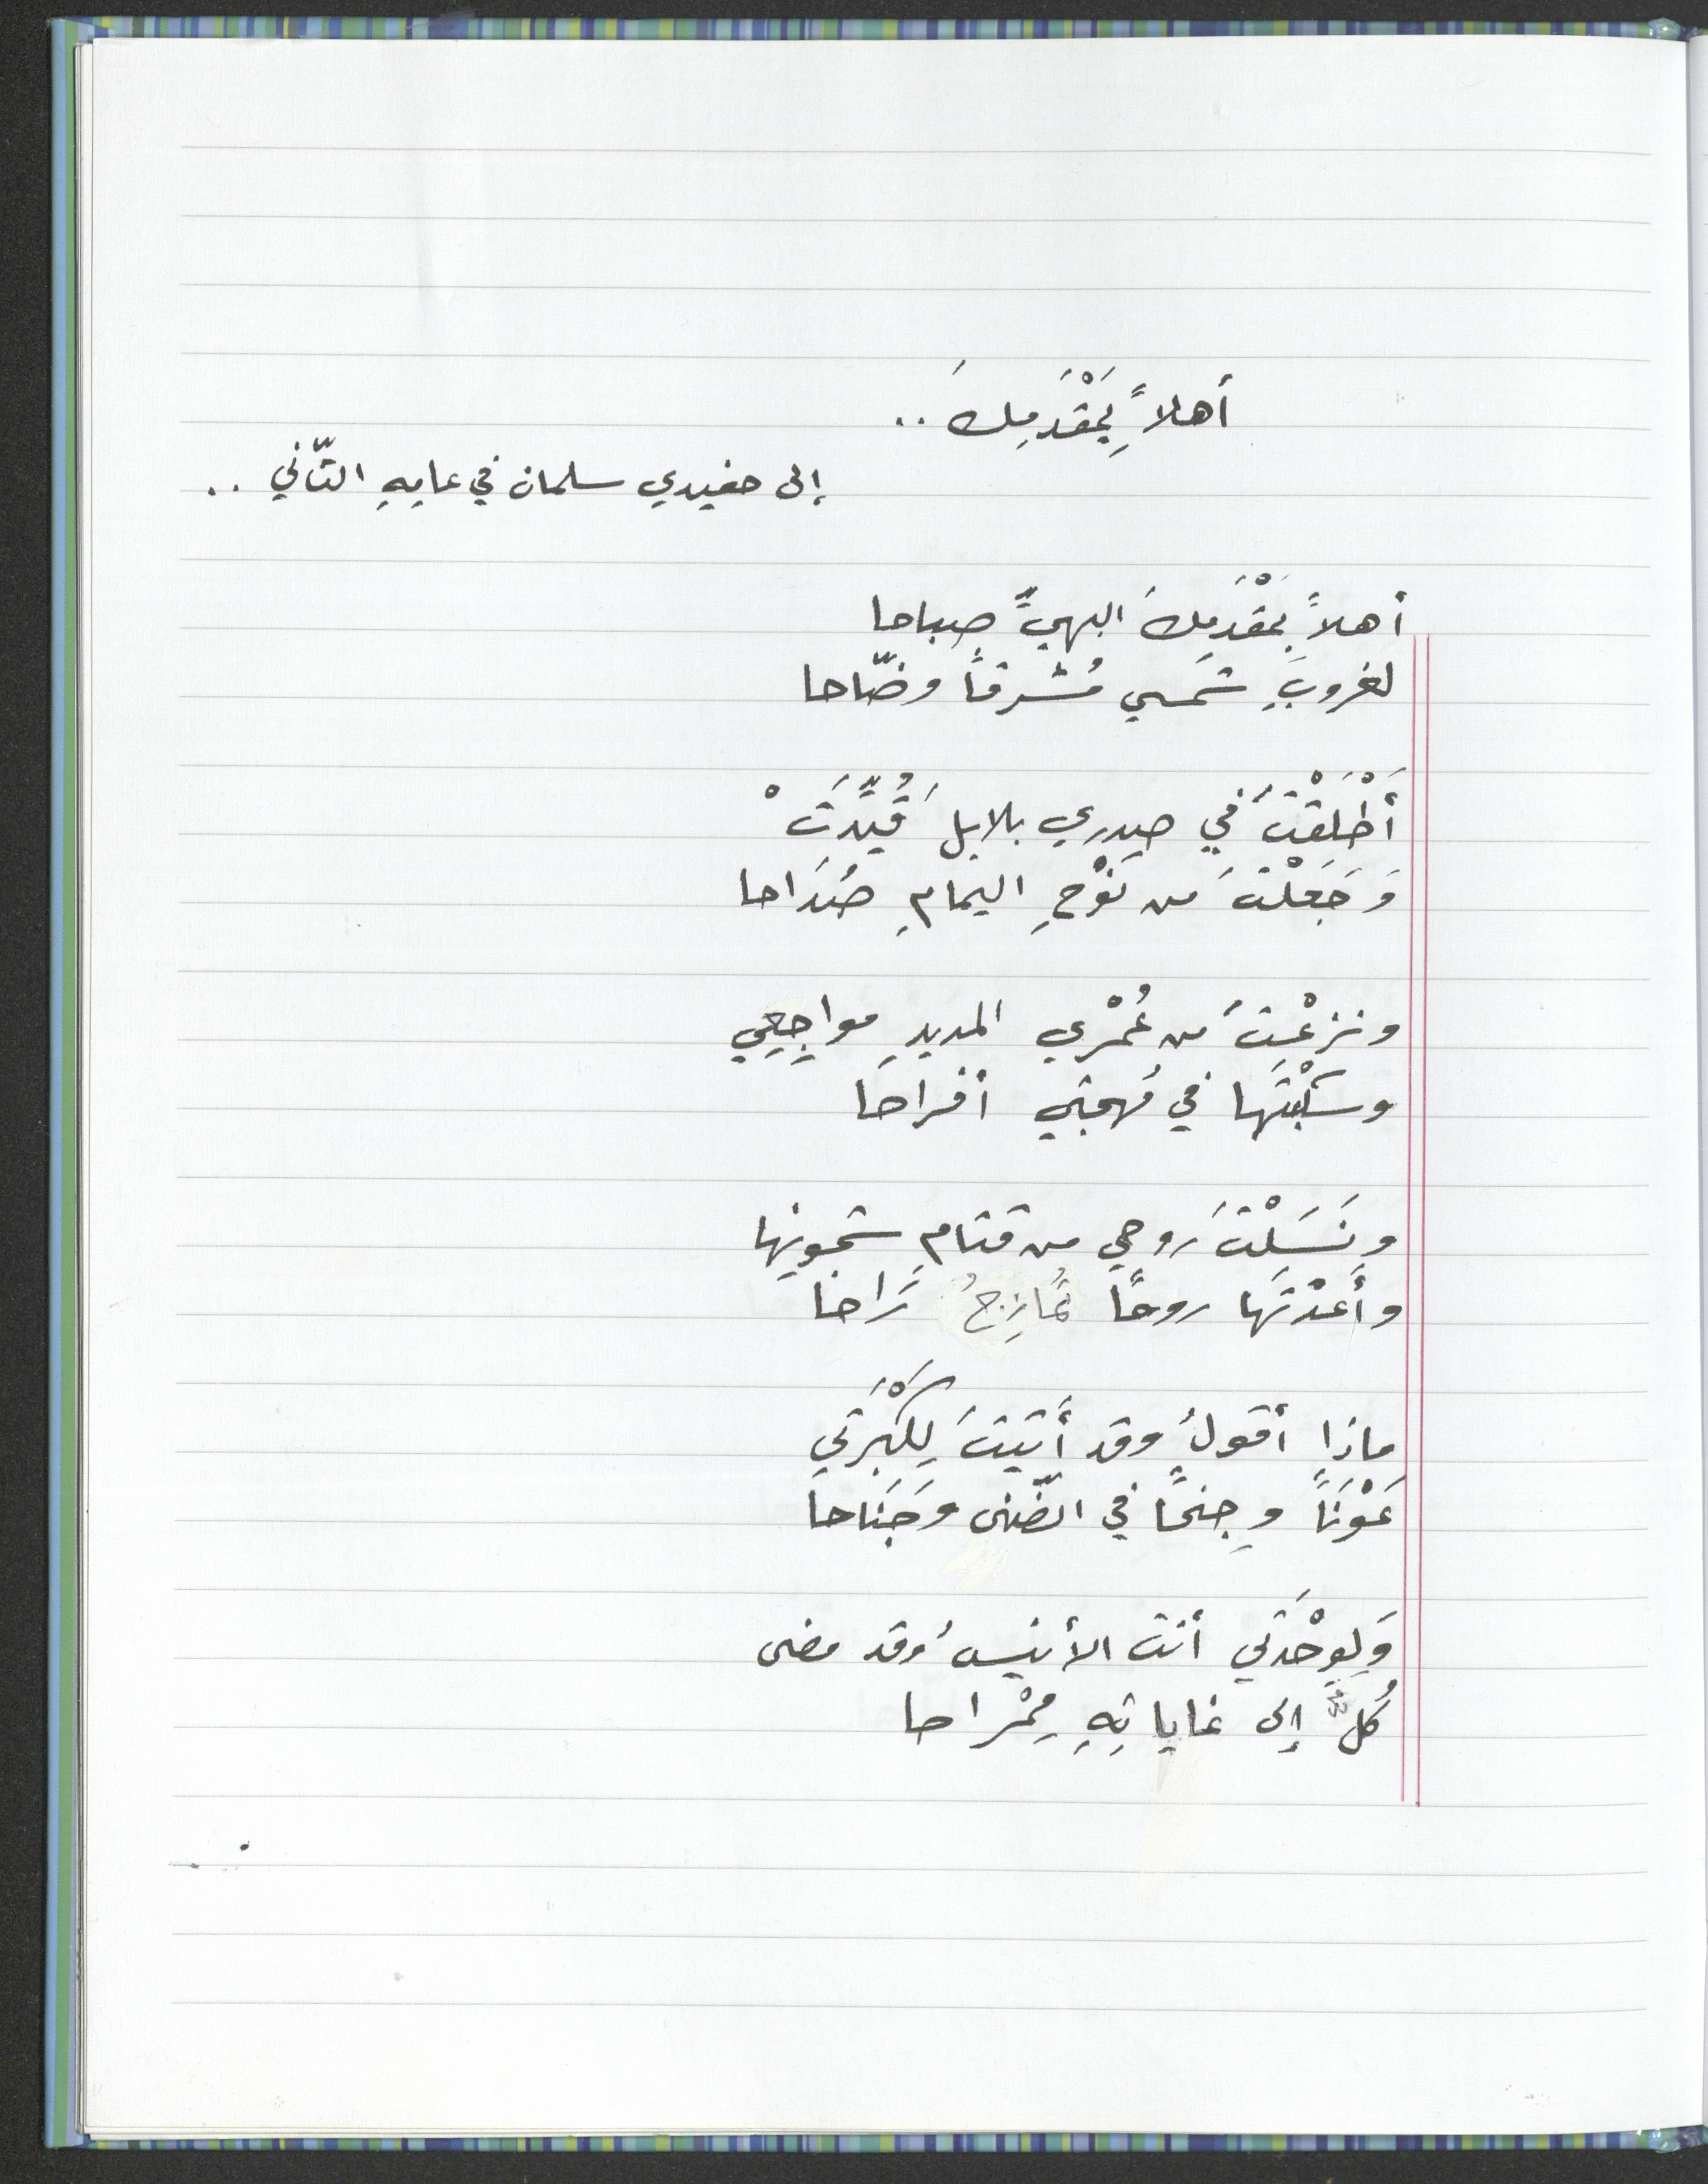 أهلاً بِمَقْدَمِكَ ..
إلى حفيدي سلمان في عامِهِ الثّاني ..
أهلاً بِمَقْدَمِكَ البهيِّ صباحا
لغروبِ شمسي مُشرقاً وضّاحا
أَطْلَقْتَ في صدري بلابلَ قُيِّدَتْ
وَجَعَلْتَ من نَوْحِ اليمامِ صُدَاحا
ونزعْتَ من عُمْري المديدِ مواجِعِي
وسَكَبْتَها في مُهجتي أفراحَا
ونَسَلْتَ روحي من قتامِ شجونِها
وأَعدْتَها روحًا تُمازِجُ رَاحَا
ماذا أقولُ وقد أَتيتَ لِكَبْرَتي
عَوْنَاً وجِنحًا في الضّنى وجَنَاحا
وَلِوحْدَتي أنت الأنيسُ وقد مضى
كُلٌّ إلى غاياتِهِ مِمْراحا